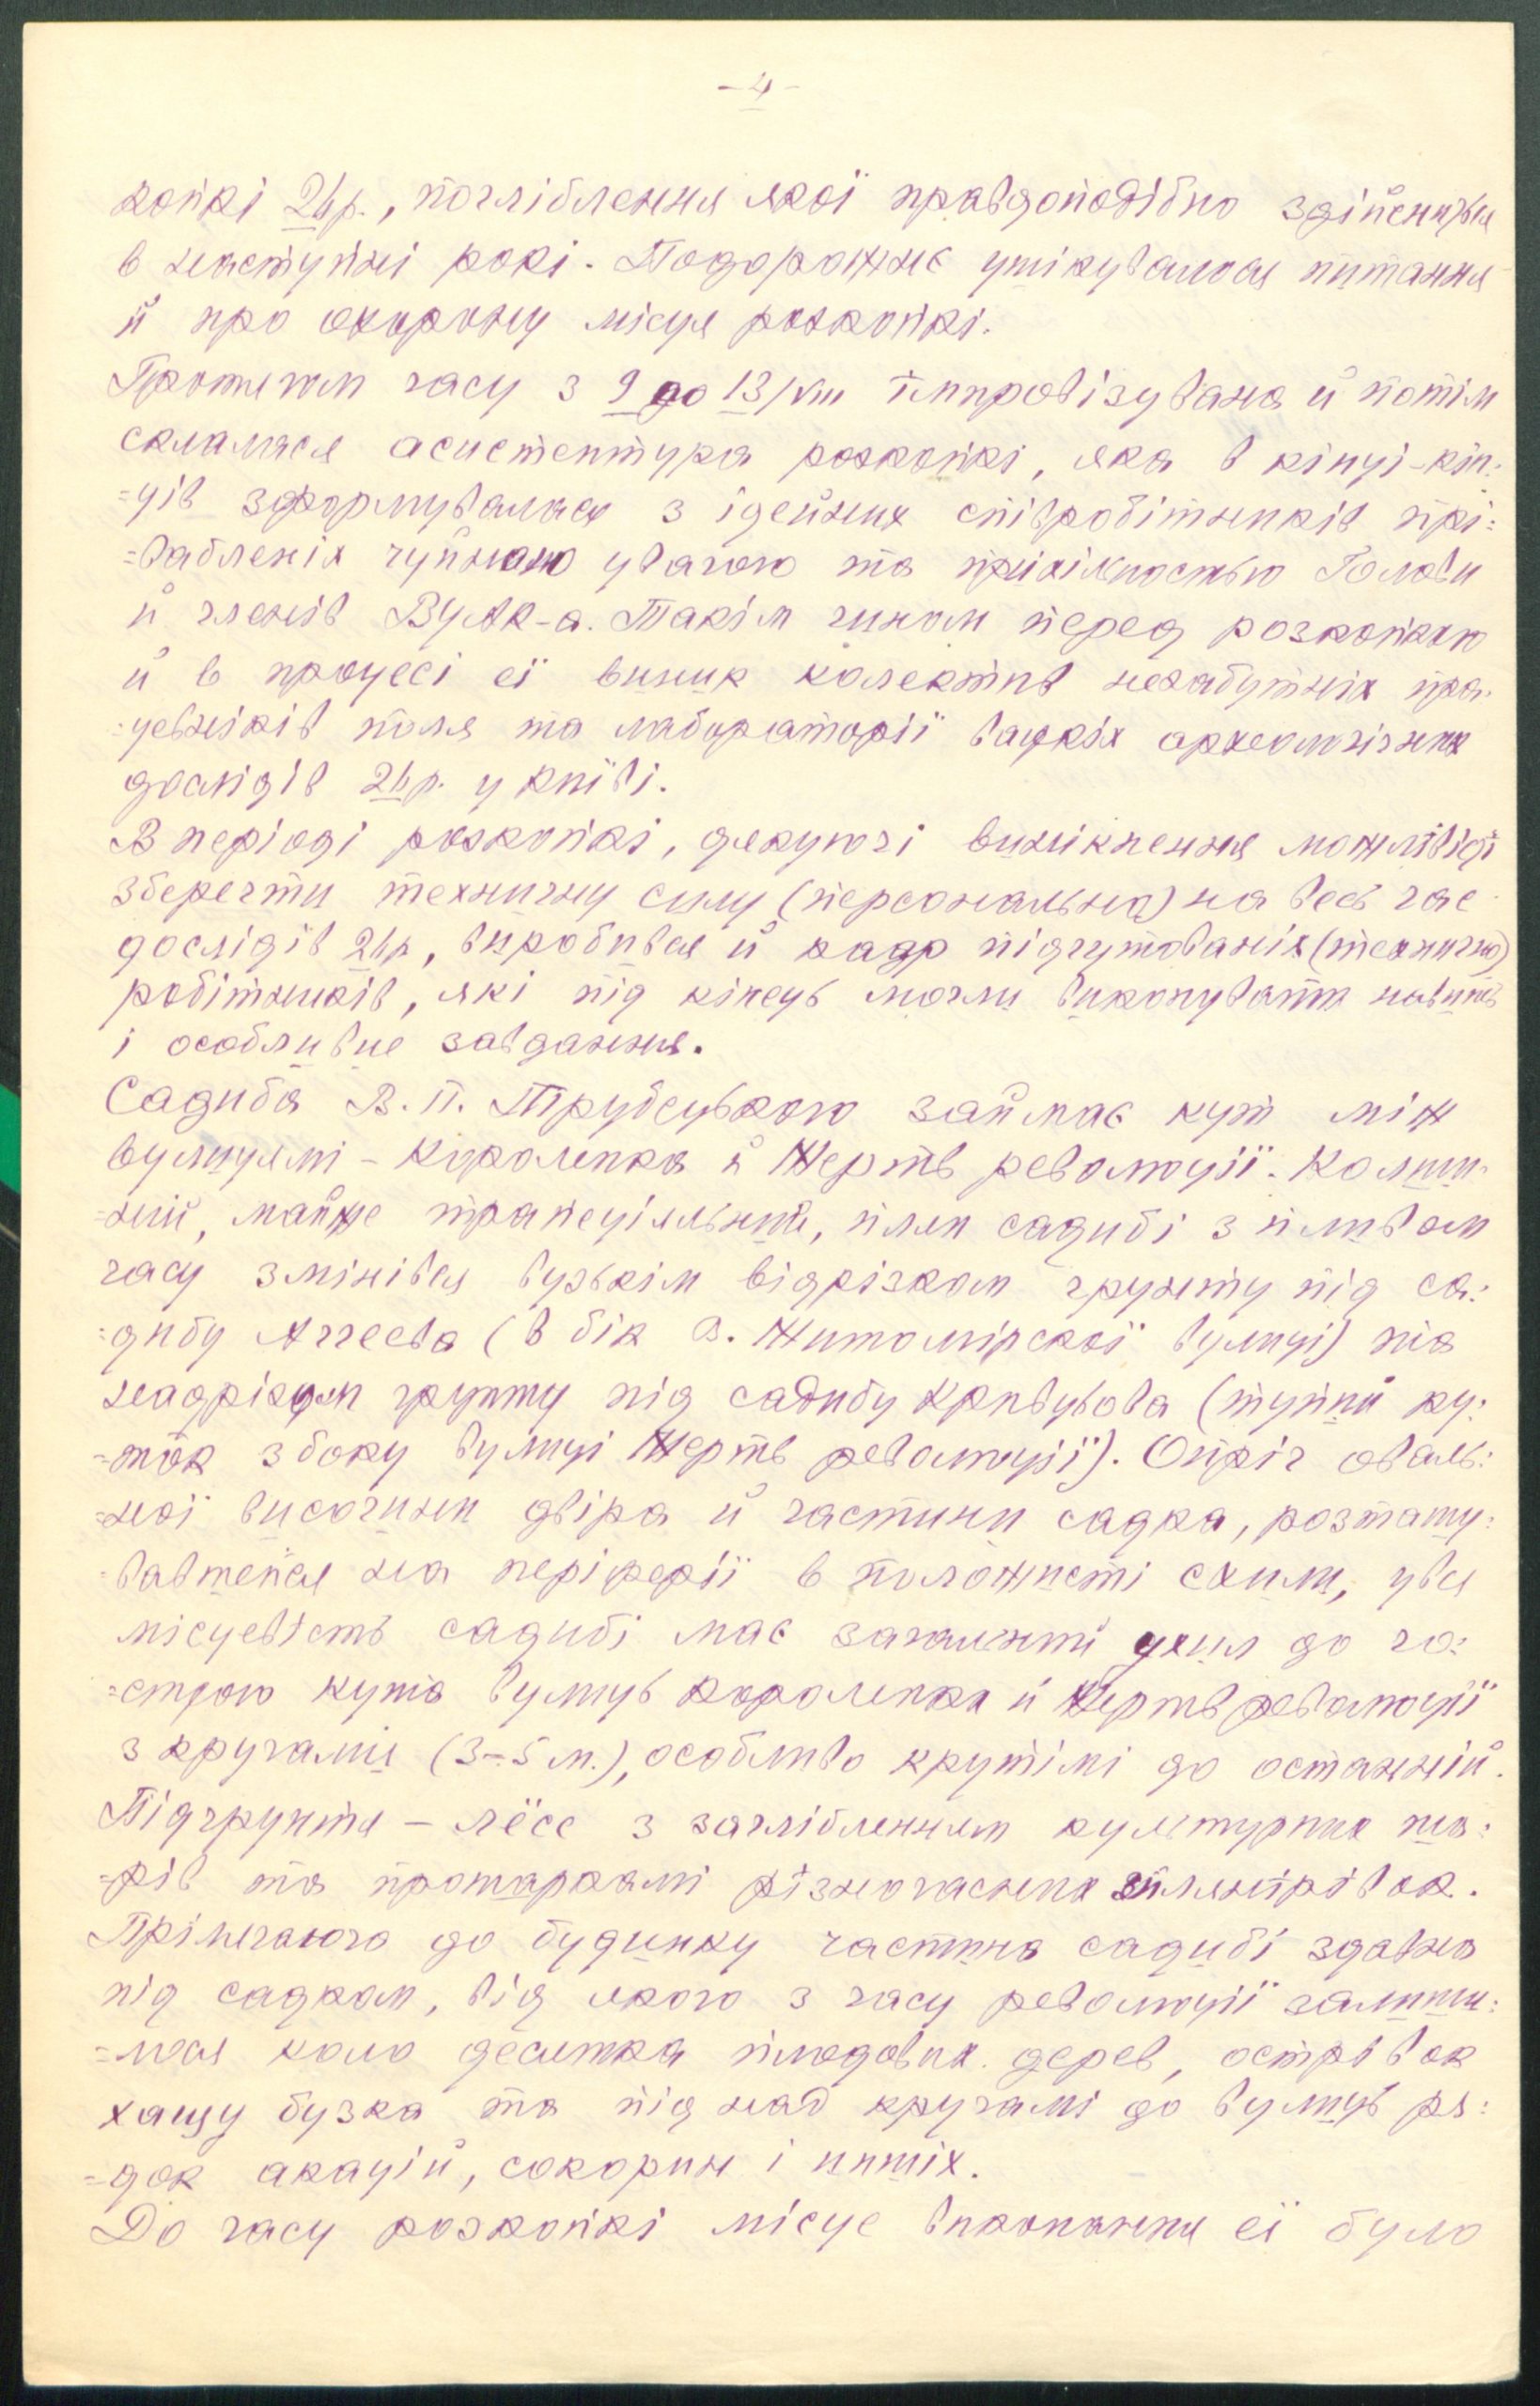 -4-
копкі 26 р., погліблення якої правдоподібно здійсниться
в наступні рокі. Подорожнє ушікувалося питання
й про охорону місця розкопкі.
Протягом часу з 9 до 13/VIII імпровізувана й потім
склалася асистентура розкопкі, яка в кінці-кін-
=ців зформувалася з ідейних співробітників прі=
=вабленіх чуйною увагою та прихільностью Голови
й членів ВУАК-а. Такім чином перед розкопкою
й в процесі єї виник колектив незабутніх пра=
=цевніків поля та лабораторії вацкіх археологічних
дослідів 26 р. у Київі.
В періоді розкопкі, дякуючі винікнення можлівісті
зберегти технічну силу (персональна) на весь час
дослідів 26 р, виробився й кадр підгутованіх (технично)
робітників, які під кінець могли виконувати навить
і особливие завдання.
Садиба В. П. Трубецького займає кут між
вулицямі - Короленка й Жертв революції. Колиш=
=ній, майже трапеціяльний, плян садибі з пливом
часу змінівся вузькім відрізком грунту під са=
=дибу Аггеева (в бік В. Житомірскої вулиці) та
надрізом грунту під садибу Кривцова (тупий ку=
=ток з боку вулиці Жертв революції). Опріч оваль=
=ної височини двіра й частини садка, розташу=
=вавшейся на періферії в положисті схили, уся
місцевість садибі має загальний ухил до го=
=строго кута вулиць Короленка й Жертв революції
з кручами (3-5 м.), особливо крутімі до останній.
Підгрунтя - лёсс з заглібленням культурних ша=
=рів та протарками різночасних зплянірівок.
Прілегаюча до будинку частина садибі здавна
під садком, від якого з часу революції залиши=
=лося коло десятка плодових дерев, острівок
хащу бузка та під над кручамі до вулиць ря=
=док акацій, сокорин і инших.
До часу розкопкі місце виконання єї було